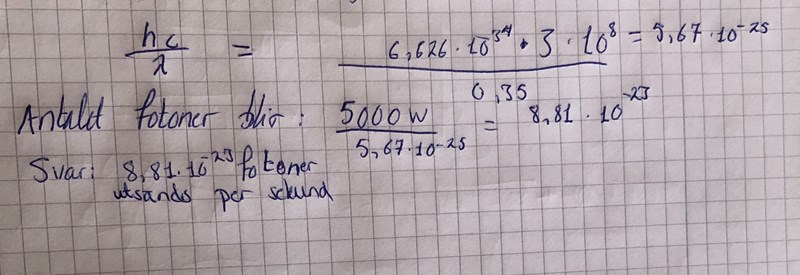 hc/λ = 6,626 · 10^-34 · 3 · 10^8 / 0,35 = 5,67 · 10^-25
Antalet fotoner blir: 5000W / 5,67·10^-25 = 8,81 · 10^-23
Svar: 8,81·10^-23 fotener
utsänds per sekund